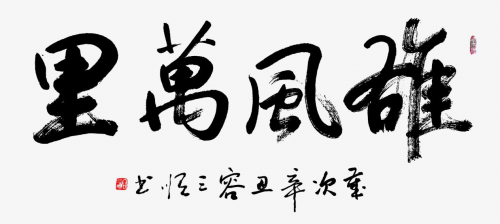 雄風萬里
歲次辛丑容三恒书